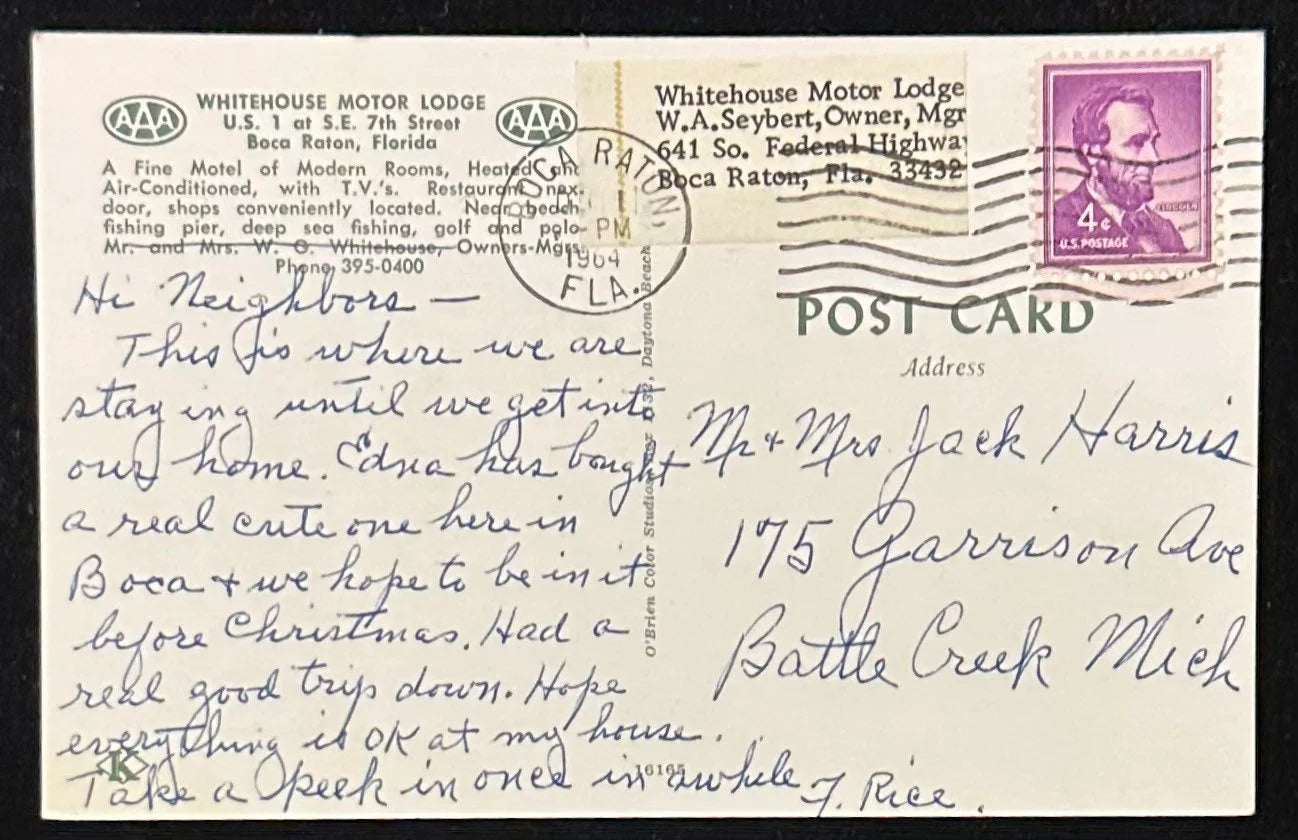 AAA
WHITEHOUSE MOTOR LODGE
U.S. 1 at S.E. 7th Street
Boca Raton, Florida
AAA
A Fine Motel of Modern Rooms, Heated and
Air-Conditioned, with T.V.'s. Restaurant nex-
door, shops conveniently located. Near beach,
fishing pier, deep sea fishing, golf and polo-
Mr. and Mrs. W. O. Whitehouse, Owners-Mgrs.
Phone 395-0400
Whitehouse Motor Lodge
W.A.Seybert,Owner, Mgr
641 So. Federal Highway
Boca Raton, Fla. 33432
BOCA RATON,
PM
1964
FLA.
LINCOLN
4¢
U.S. POSTAGE
Hi Neighbors —
This is where we are
staying until we get into
our home. Edna has bought
a real cute one here in
Boca & we hope to be in it
before Christmas. Had a
real good trip down. Hope
everything is OK at my house.
Take a peek in once in awhile
F. Rice.
K
16165
O'Brien Color Studios, Daytona Beach
POST CARD
Address
Mr & Mrs Jack Harris
175 Garrison Ave
Battle Creek Mich